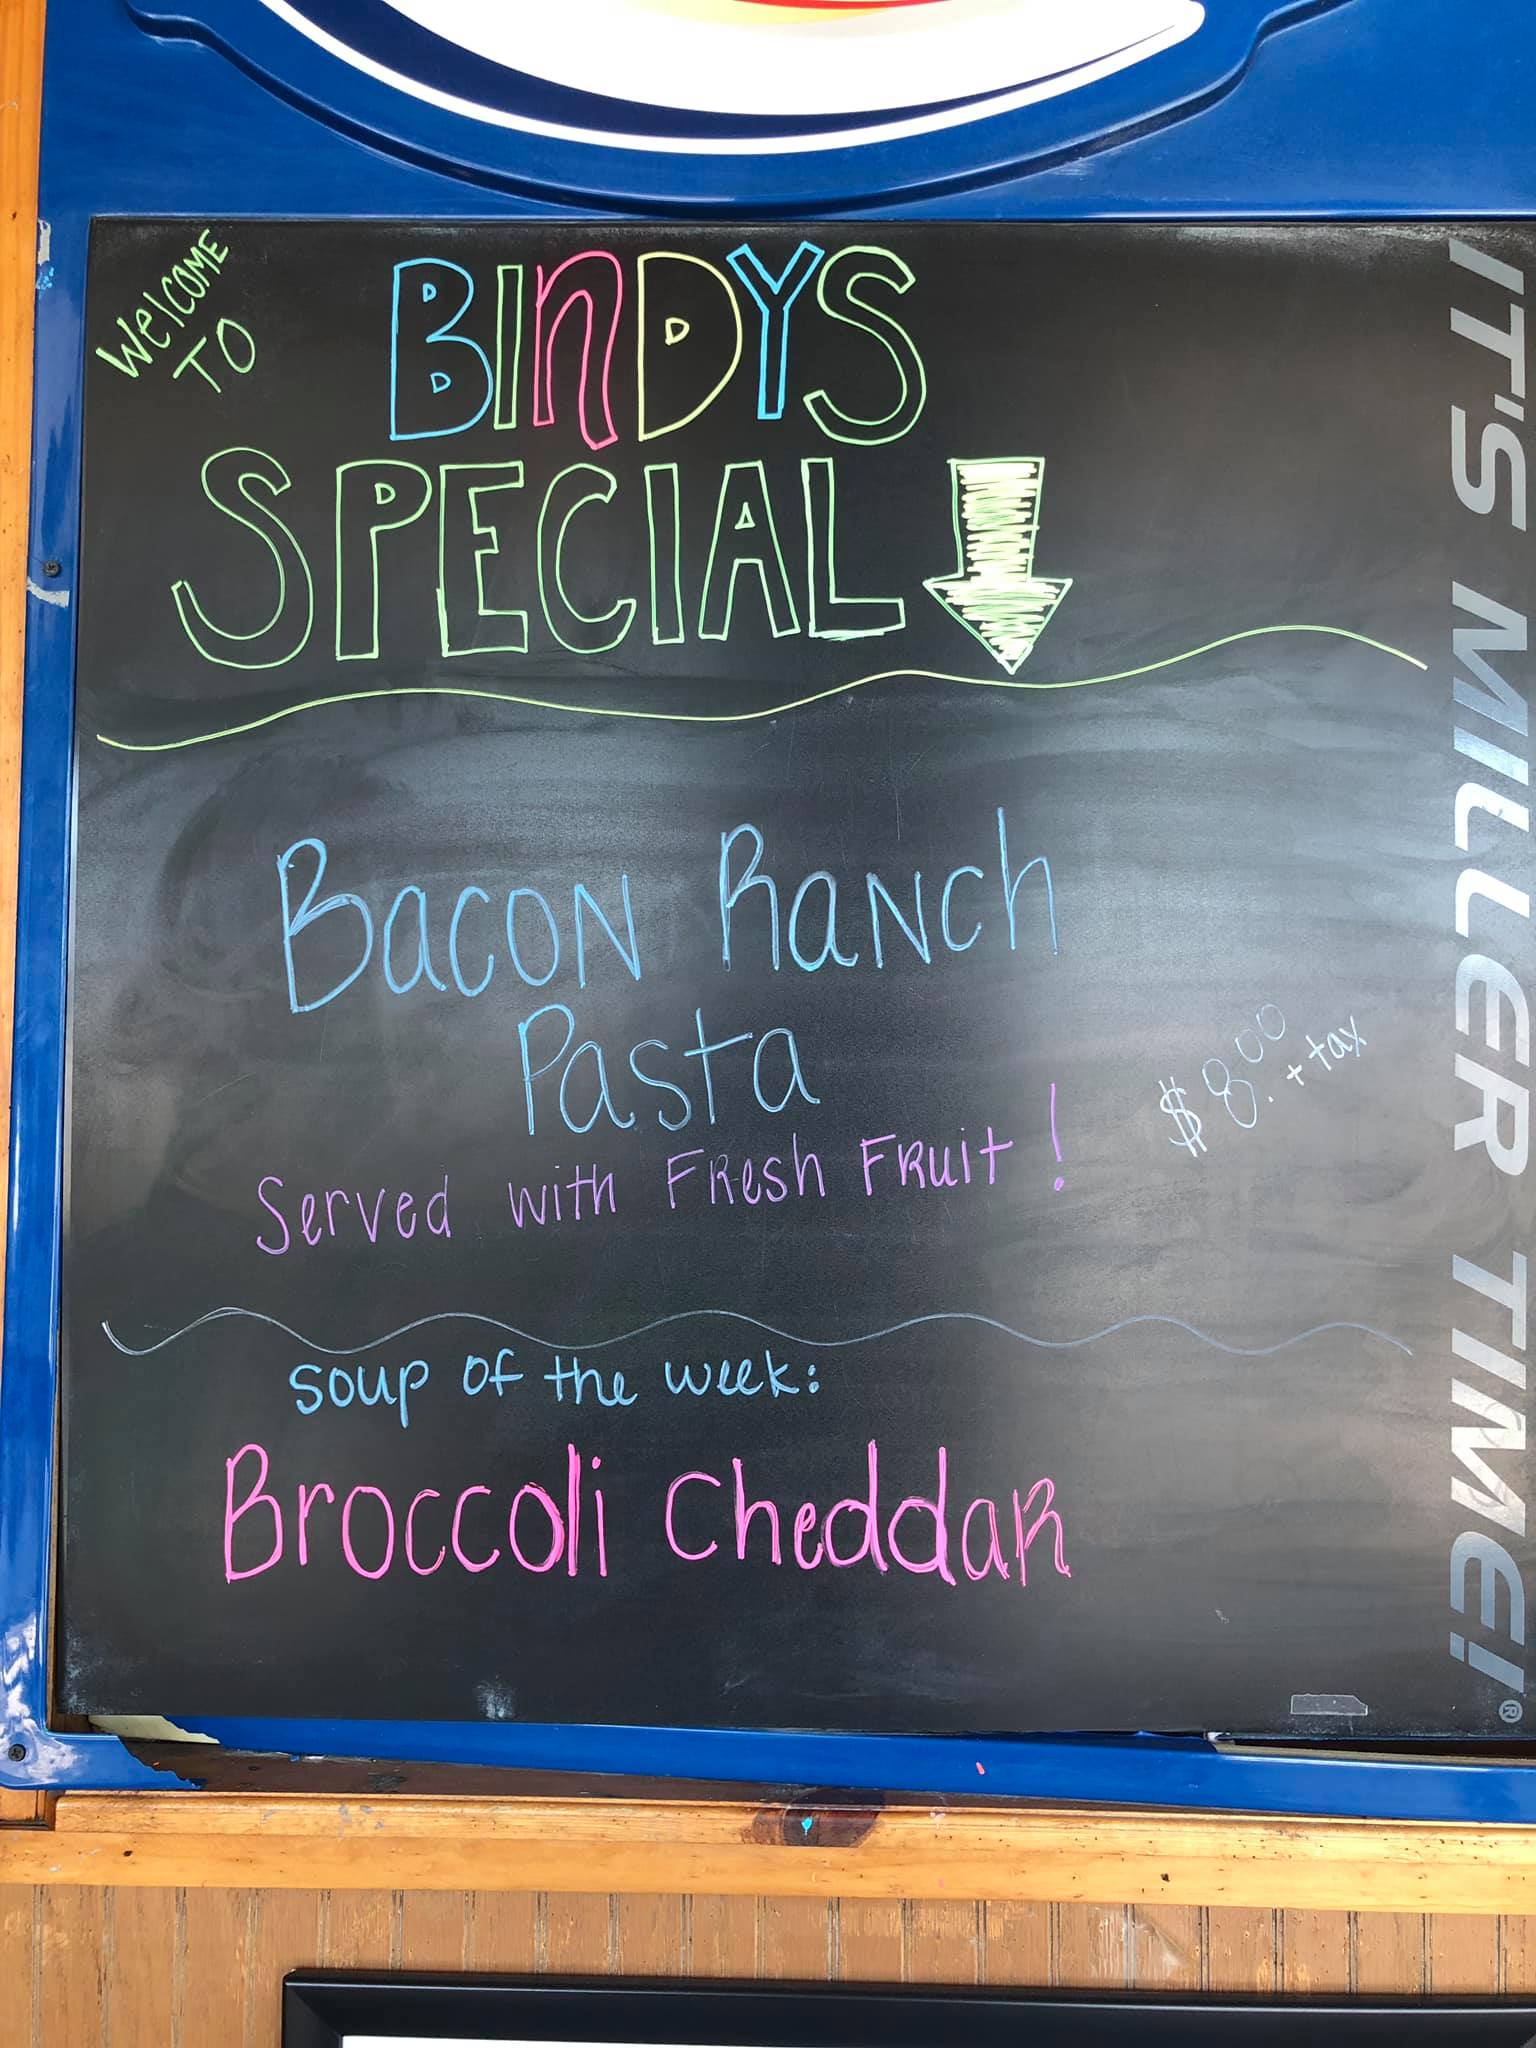 WELCOME
TO
BINDYS
SPECIAL
Bacon Ranch
Pasta
Served with Fresh Fruit!
$8.00 + tax
soup of the week:
Broccoli Cheddar
IT'S MILLER TIME!®